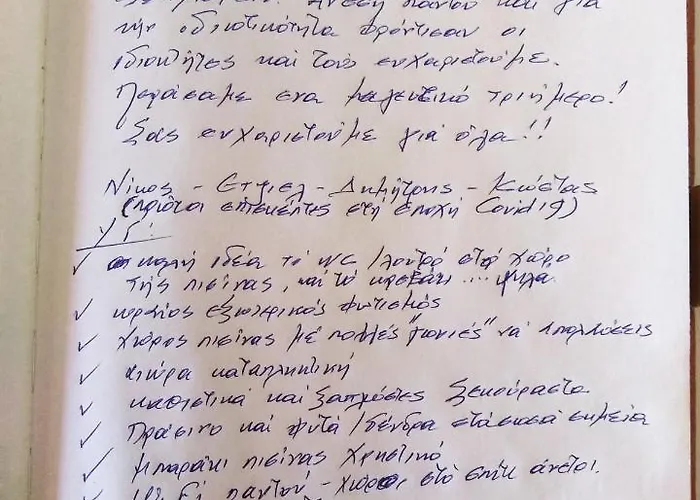 Άνεση παντού και για
την ιδιωτικότητα φρόντισαν οι
ιδιοκτήτες και τους ευχαριστούμε.
Περάσαμε ενα μαγευτικό τριήμερο!
Σας ευχαριστούμε για όλα!!
Νίκος - Ετφιελ - Δημήτρης - Κώστας
(πρώτοι επισκέπτες στη εποχή Covid 19)
Υ.Γ.
✓ καλή ιδέα το WC / λουτρό στο χώρο
της πισίνας, και το κρεβάτι .... ψηλά.
✓ ωραίος εξωτερικός φωτισμός
✓ χώρος πισίνας με πολλές "γωνιές" να απολαύσεις
✓ αιώρα καταπληκτική
✓ καθιστικά και ξαπλώστες ξεκούραστα
✓ Πράσινο και φυτά / δένδρα στα σωστά σημεία
✓ μπαράκι πισίνας χρηστικό
παντού - χώροι στο σπίτι άνετοι.